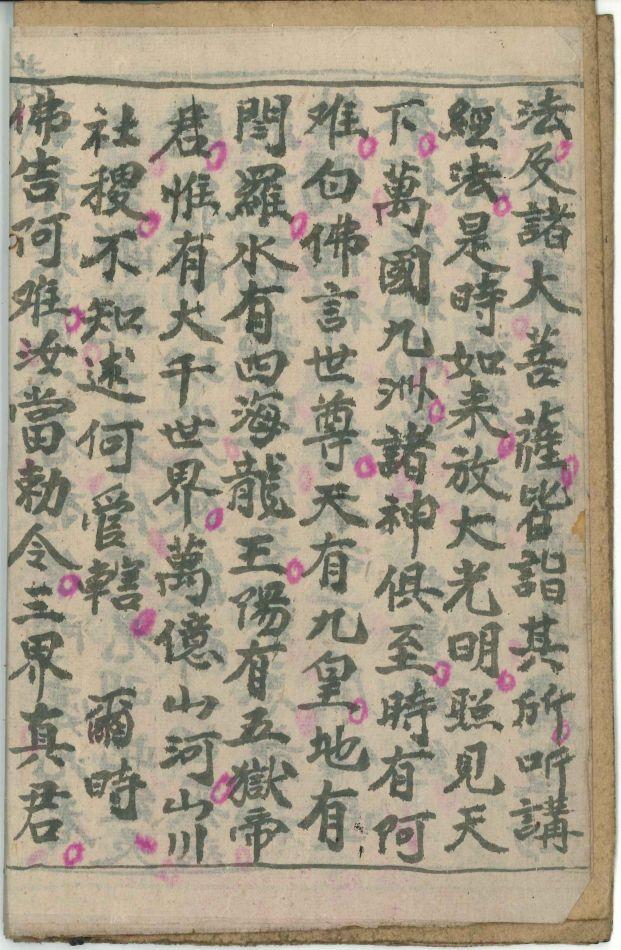 法及諸大菩薩皆詣其所听講
經法是時如来放大光明照見天
下萬國九洲諸神俱至時有阿
难白佛言世尊天有九皇地有
閆羅水有四海龍王陽有五獄帝
君惟有大千世界萬億山河山川
社稷不知述何管轄　爾時
佛告阿难汝當勅令三界真君